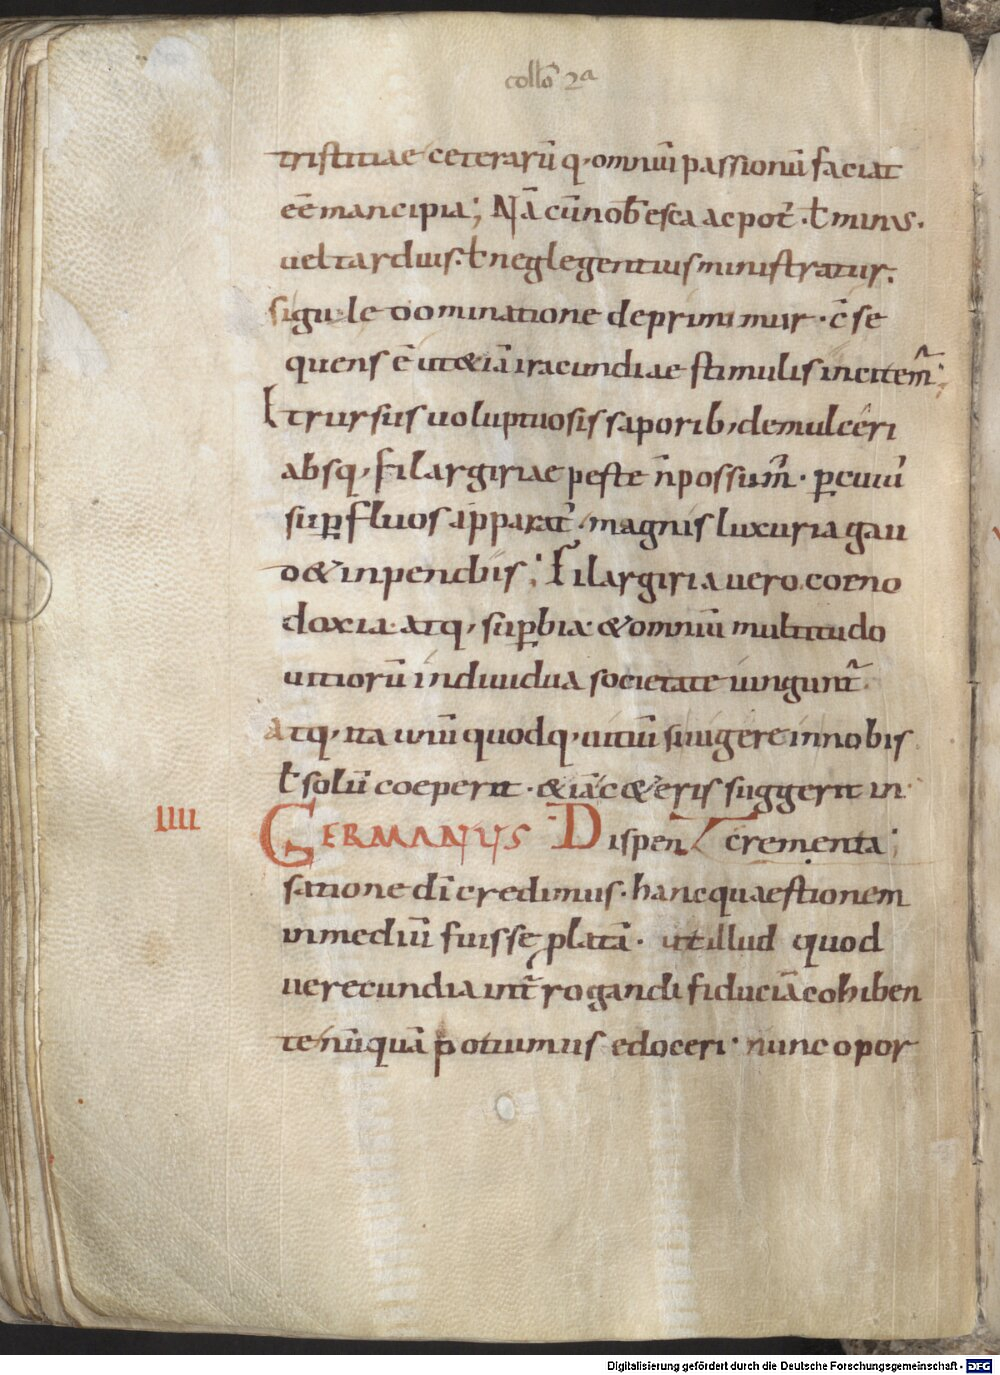 collō 2a
tristitiae ceterarū q, omniū passionū faciat
eē mancipia; Nā cū nob̄ esca ac pot̄ · ƚ minus ·
uel tardius · ƚ neglegentius ministratur.
si gulę dominatione deprimimur · c̄se
quens ē ut & iā iracundiae stimulis incitem̄;
Et rursus uoluptuosis saporib, demulceri
absq, filargiriae peste n̄ possum̄ · ꝑ cuiū
suꝑfluos apparat̄ · magnis luxuria gau
d& inpendiis; Filargiria uero. coeno
doxia. atq, suꝑbia & omniū multitudo
uitiorū indiuidua societate iungunt̄.
atq, ita unū quodq, uitiū si uigere in nobis
ƚ solū coeperit · & iā c&eris suggerit in
IIII GERMANUS Dispen crementa;
satione dī credimus · hanc quaestionem
in mediū fuisse ꝓlatā · ut illud quod
uerecundia int̄rogandi fiduciā cohiben
te nūquā potuimus edoceri · nunc opor
Digitalisierung gefördert durch die Deutsche Forschungsgemeinschaft - DFG